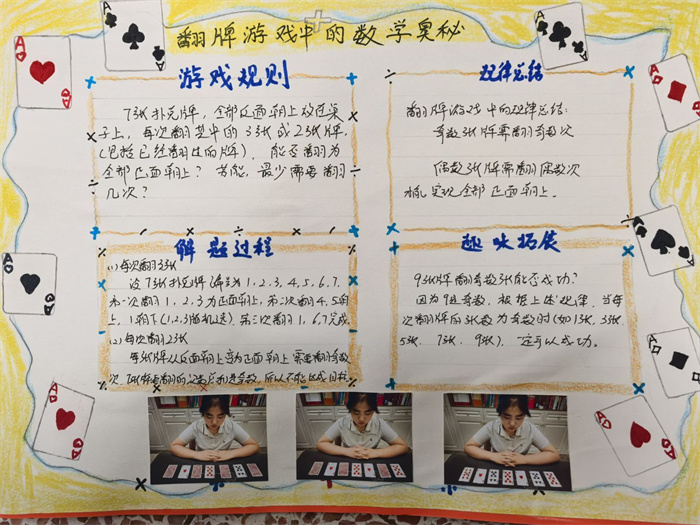 翻牌游戏中的数学奥秘
游戏规则
7张扑克牌，全部反面朝上放在桌
子上，每次翻其中的3张或2张牌，
(包括已经翻过的牌)，能否翻为
全部正面朝上？若能，最少需要翻
几次？
规律总结
翻牌游戏中的规律总结：
奇数张牌需翻奇数次
偶数张牌需翻偶数次
才能实现全部正面朝上。
解题过程
(1)每次翻3张
设7张扑克牌编号为1.2.3.4.5.6.7.
第一次翻1,2,3为正面朝上，第二次翻4,5朝
上，1朝下(1,2,3随机选)，第三次翻1,6,7完成
(2)每次翻2张
每张牌从反面朝上变为正面朝上 需要翻奇数
次，7张牌需翻的总数应和是奇数，所以不能达成目标
趣味拓展
9张牌翻奇数张能否成功？
因为9是奇数，根据上述规律，当每
次翻牌的张数为奇数时(如1张，3张，
5张，7张，9张)，是可以成功。
A
A
A
A
A
A
A
A
A
A